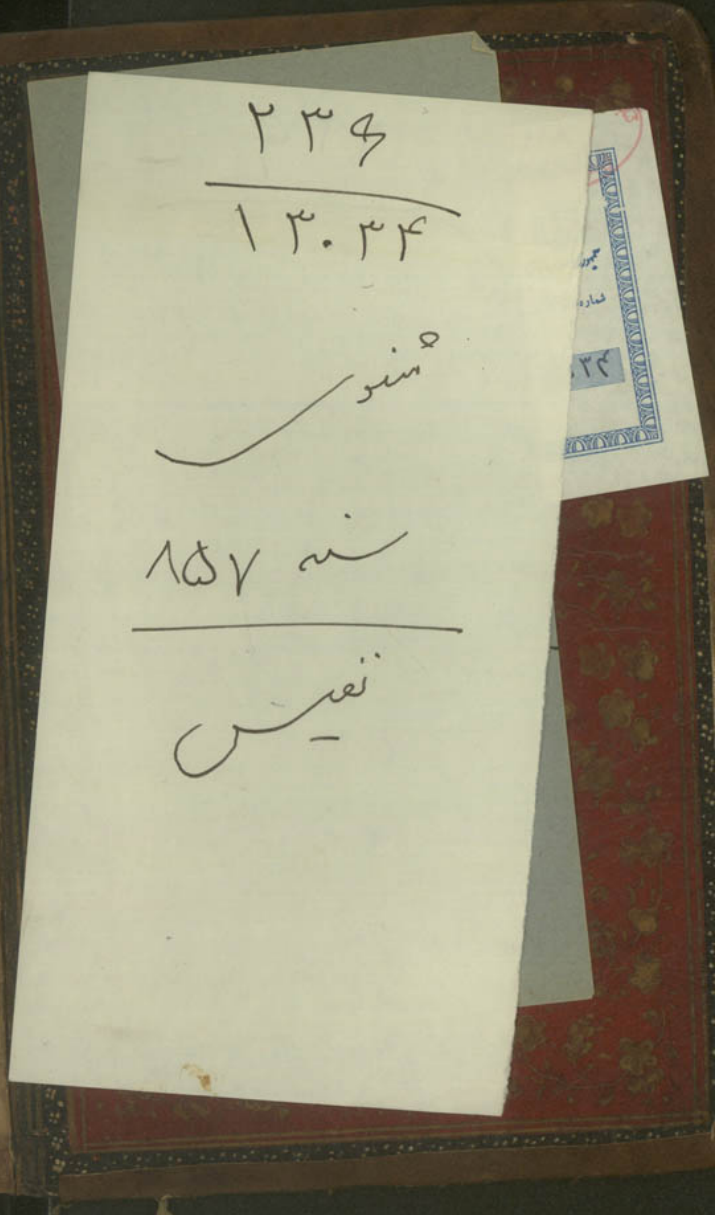 ۲۳۶
۱۳۰۳۴
مثنوی
سنه ۸۵۷
نفیس
جمهور
شماره
۰۳۴